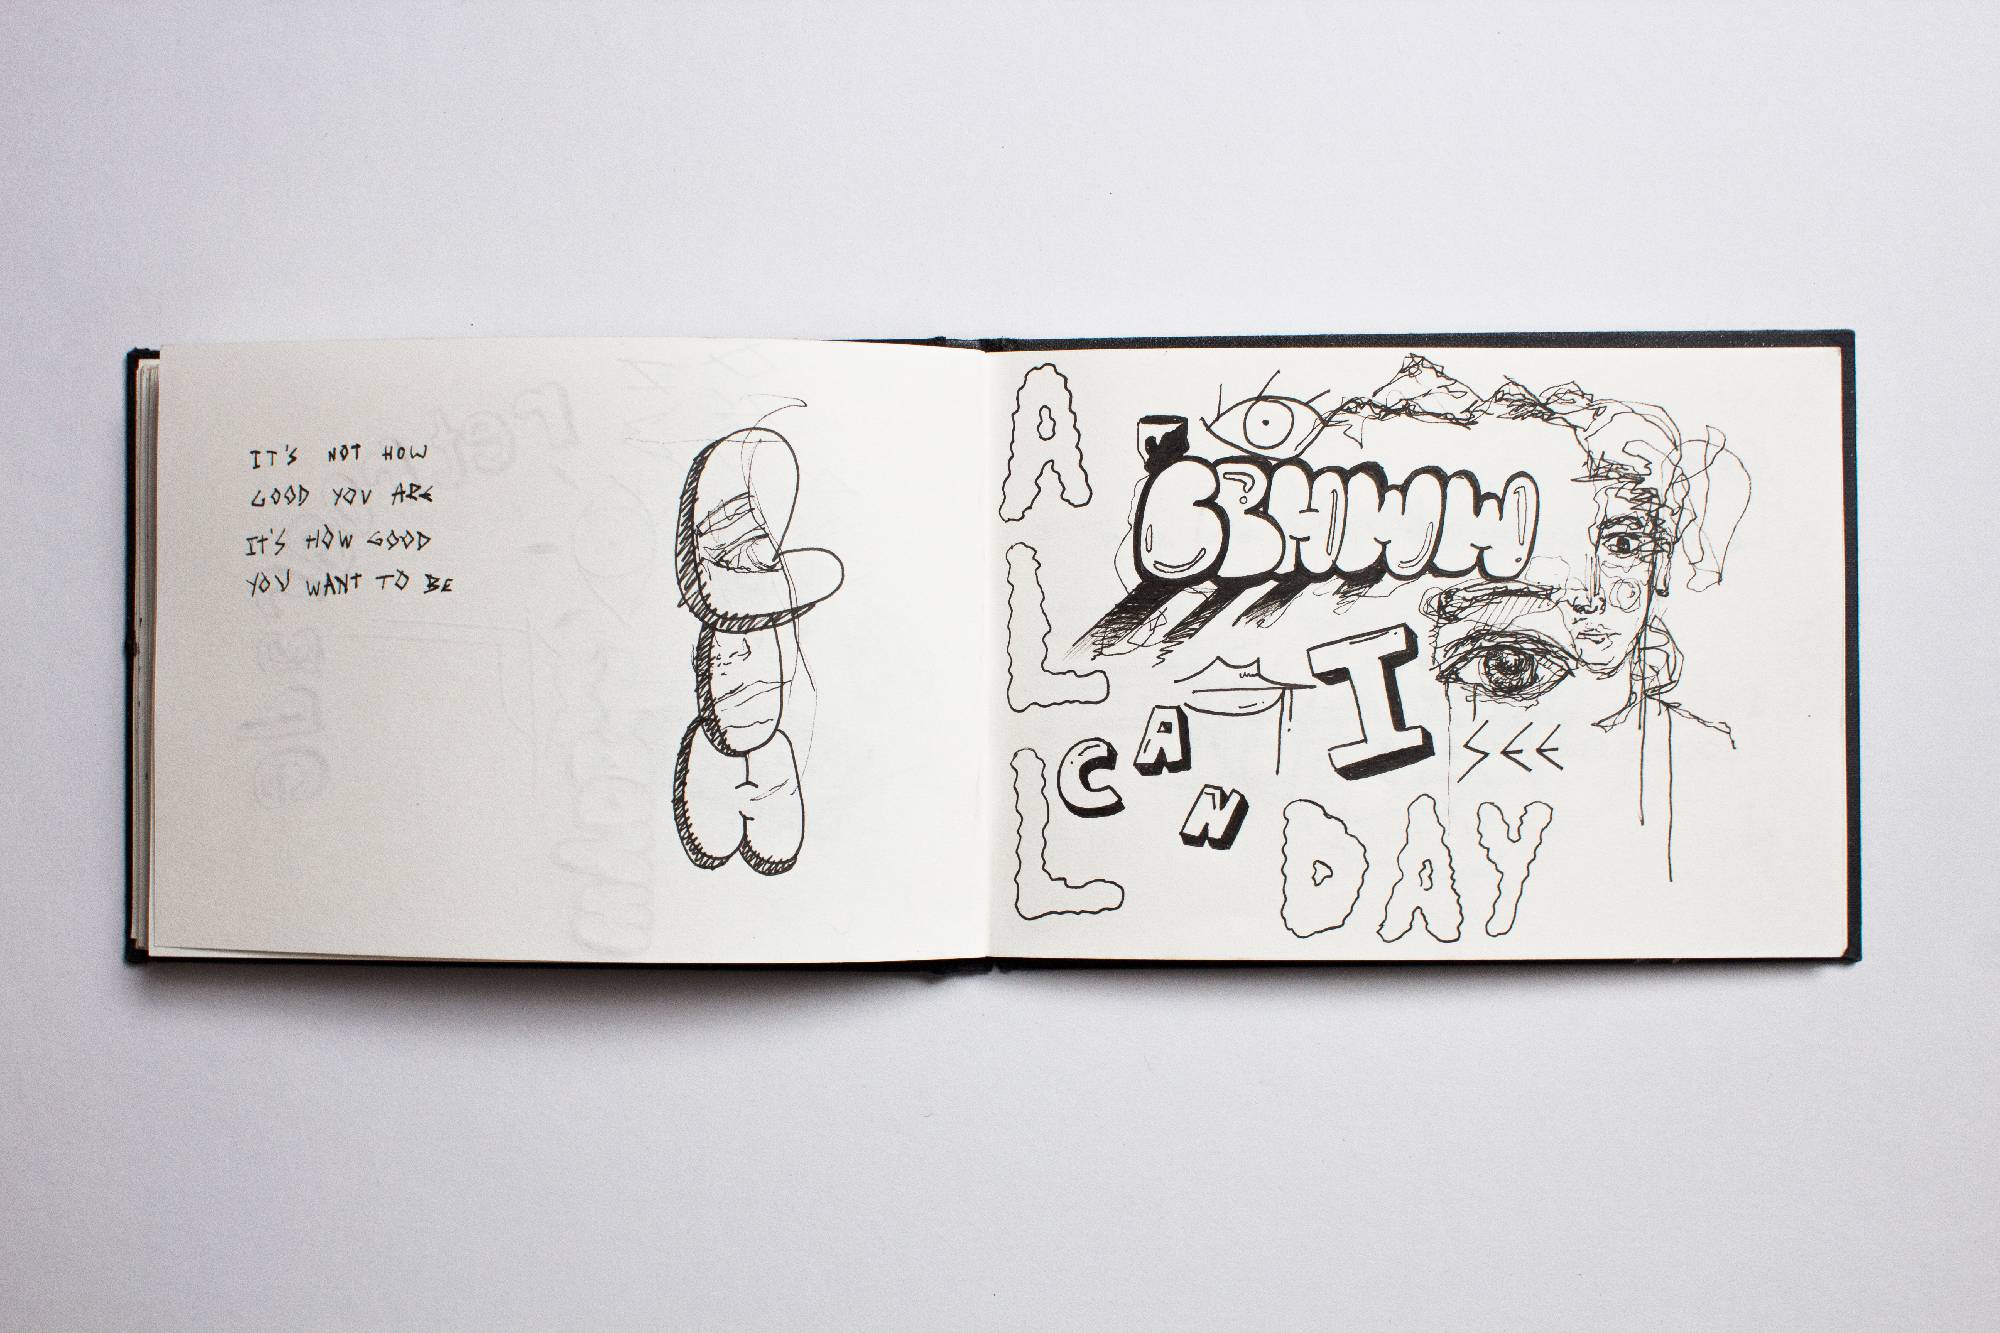 IT'S NOT HOW
GOOD YOU ARE
IT'S HOW GOOD
YOU WANT TO BE
ALL
CAN
I
SEE
DAY